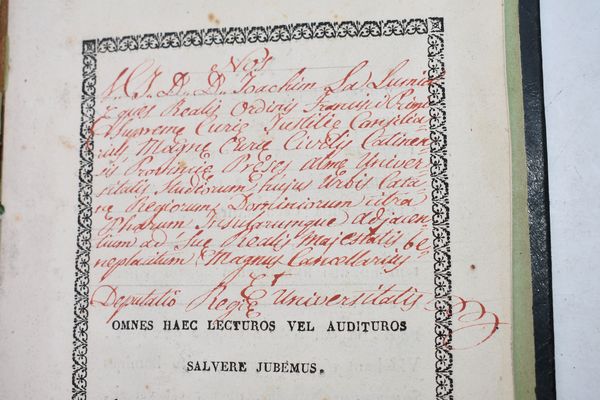 Nos
D. D. Joachim La Lumia
Eques Realis Ordinis Francisci Primi
Supreme Curie Justitie Consilia-
rius Magne Curie Civilis Catinen-
sis Provincie Preses Alme Univer-
sitatis Studiorum hujus Urbis Cata-
ne Regiorum Dominiorum citra
Pharum Insularumque adjacen-
tium ad Sue Realis Majestatis be-
neplacitum Magnus Cancellarius
Et
Deputatio Regie Universitatis
OMNES HAEC LECTUROS VEL AUDITUROS
SALVERE JUBEMUS.